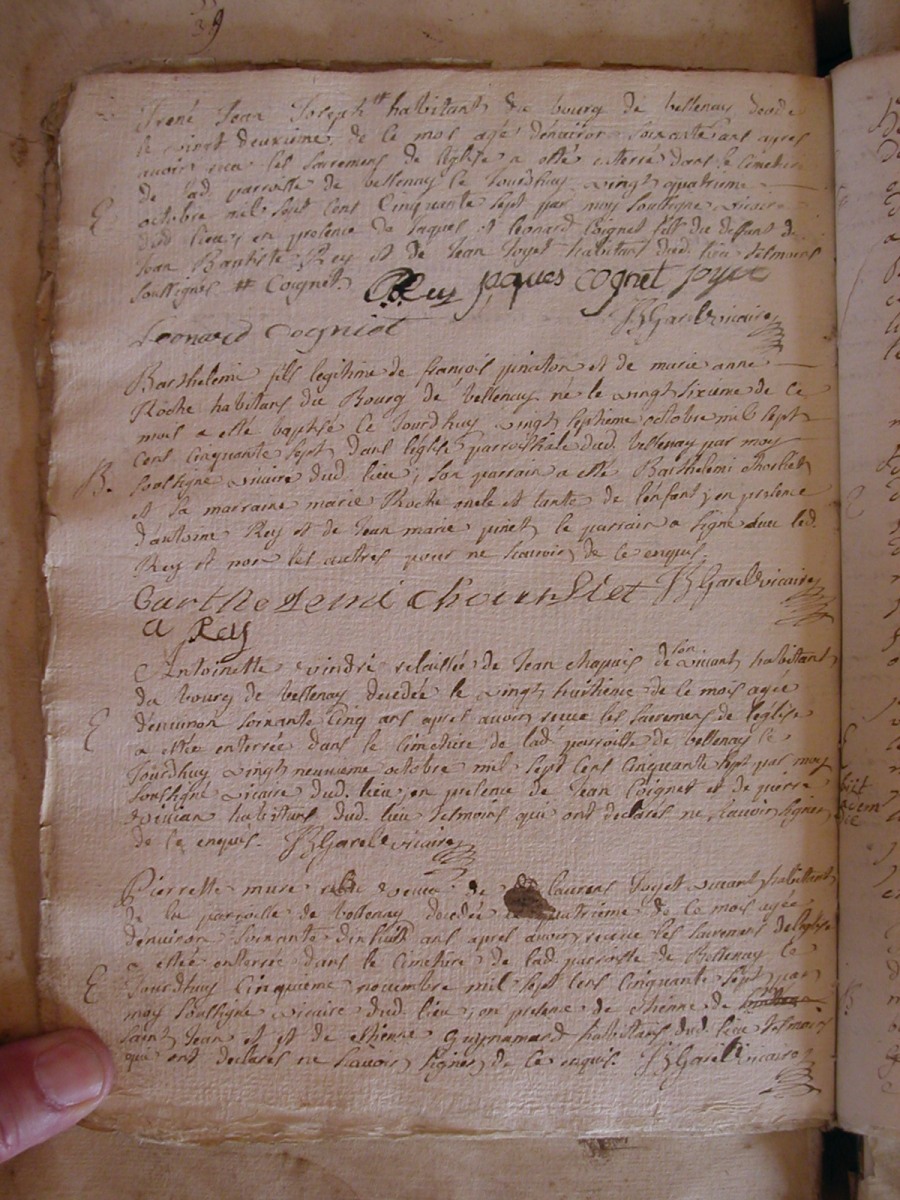 39
Irené Jean Joseph # habitant du bourg de vellenay decede
le vingt deuxieme de ce mois agé d'environ soixante ans apres
avoir recu les sacremens de l'eglise a esté enterré dans le cimetiere
de lad. parroisse de vellenay ce jourdhuy vingt quatrieme
E
octobre mil sept cent cinquante sept par moy soussigné vicaire
dud lieu, en presence de Jaques et leonard Coignet fils du deffunt de
Jean Baptiste Rey et de Jean Joyet habitans dud. lieu tesmoins
soussignes # Coignet. Rey jaques cognet joyet
JB Garel vicaire
Leonard cogniet
Barthelemi fils legitime de françois pinaton et de marie anne
Roche habitans du Bourg de vellenay né le vingt sixieme de ce
mois a esté baptisé ce jourdhuy vingt septieme octobre mil sept
cent cinquante sept dans l'eglise parroissiale dud. vellenay par moy
B.
soussigné vicaire dud. lieu; son parrain a esté Barthelemi
et sa marraine marie Roche oncle et tante de l'enfant; en presence
d'antoine Rey et de Jean marie pinet, le parrain a signé avec led.
Rey et non les autres pour ne scavoir de ce enquis.
Barthelemi JB Garel vicaire
A Rey
Antoinette vindré relaissée de Jean chapuis de son vivant habitant
du bourg de vellenay decedée le vingt huitieme de ce mois agée
E
d'environ soixante cinq ans apres avoir receue les sacremens de l'eglise
a estée enterrée dans le cimetiere de lad. parroisse de vellenay ce
jourdhuy vingt neuvieme octobre mil sept cent cinquante sept par moy
soussigné vicaire dud. lieu, en presence de Jean Coignet et de pierre
habitans dud. lieu tesmoins qui ont declarés ne scavoir signer
de ce enquis. JB Garel vicaire
Pierrette mure veuve de laurens Joyet vivant habitant
de la parroisse de vellenay decedée quatrieme de ce mois agée
d'environ soixante dix huit ans apres avoir receue les sacremens de l'eglise
a estée enterrée dans le cimetiere de lad. parroisse de vellenay ce
E
jourdhuy cinquieme novembre mil sept cens cinquante sept par
moy soussigné vicaire dud. lieu, en presence de Etienne de
saint Jean et et de etienne habitans dud. lieu tesmoins
qui ont declarés ne scavoir signer de ce enquis. JB Garel vicaire